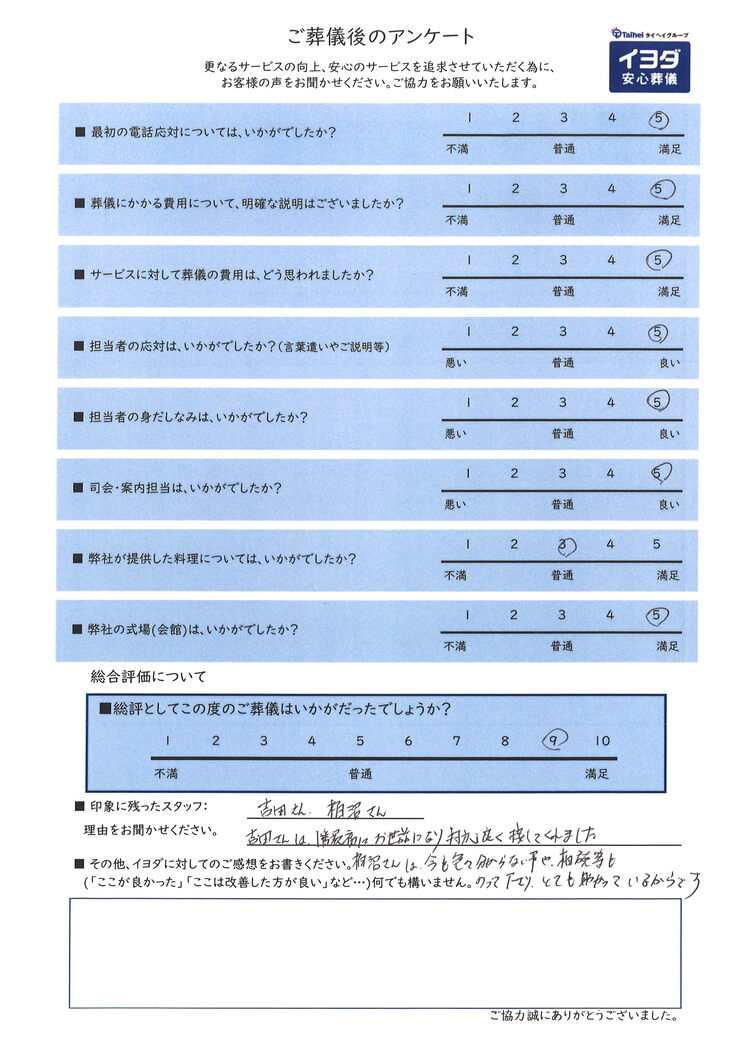 ご葬儀後のアンケート
Taihei タイヘイグループ
イヨダ
安心葬儀
更なるサービスの向上、安心のサービスを追求させていただく為に、
お客様の声をお聞かせください。ご協力をお願いいたします。
■ 最初の電話応対については、いかがでしたか? 1 2 3 4 5
不満 普通 満足
■ 葬儀にかかる費用について、明確な説明はございましたか? 1 2 3 4 5
不満 普通 満足
■ サービスに対して葬儀の費用は、どう思われましたか? 1 2 3 4 5
不満 普通 満足
■ 担当者の応対は、いかがでしたか?(言葉遣いやご説明等) 1 2 3 4 5
悪い 普通 良い
■ 担当者の身だしなみは、いかがでしたか? 1 2 3 4 5
悪い 普通 良い
■ 司会・案内担当は、いかがでしたか? 1 2 3 4 5
悪い 普通 良い
■ 弊社が提供した料理については、いかがでしたか? 1 2 3 4 5
不満 普通 満足
■ 弊社の式場(会館)は、いかがでしたか? 1 2 3 4 5
不満 普通 満足
総合評価について
■総評としてこの度のご葬儀はいかがだったでしょうか?
1 2 3 4 5 6 7 8 9 10
不満 普通 満足
■ 印象に残ったスタッフ: 吉田さん、相沼さん
理由をお聞かせください。 吉田さんは、お世話になり 良く接してくれました
■ その他、イヨダに対してのご感想をお書きください。相沼さんは、今も色々分からない事や、相談等も
(「ここが良かった」「ここは改善した方が良い」など…)何でも構いません。のって下さり、とても助かっているからです
ご協力誠にありがとうございました。